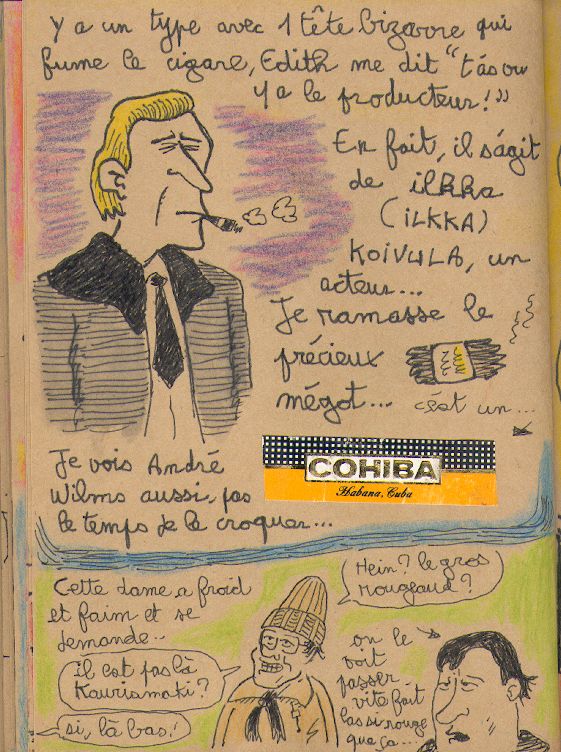 y a un type avec 1 tête bizarre qui
fume le cigare, Edith me dit "t'as vu
y a le producteur!"
En fait, il s'agit
de ilkka
(iLKKA)
KOiVULA, un
acteur...
Je ramasse le
précieux
mégot...
c'est un...
COHIBA
Habana, Cuba
Je vois André
Wilms aussi, pas
le temps de le croquer...
Cette dame a froid
et faim et se
demande..
il est pas là
Kaurismaki?
si, là bas!
Hein? le gros
rougeaud?
on le
voit
passer
vite fait
pas si rouge
que ça...